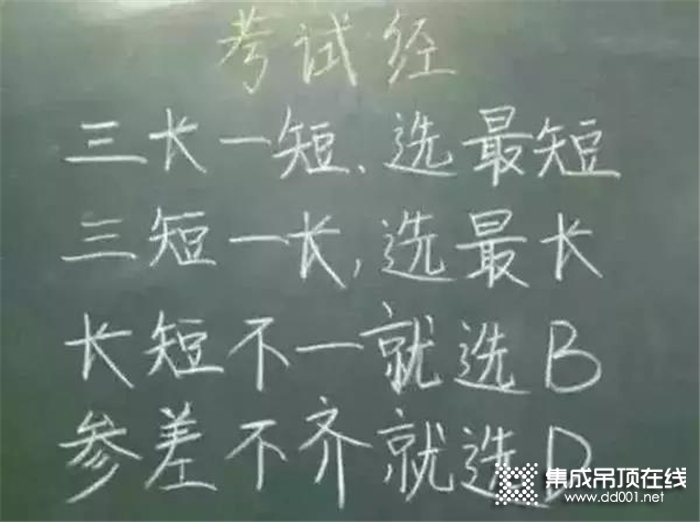 考试经
三长一短、选最短
三短一长,选最长
长短不一就选B
参差不齐就选D
集成吊顶在线
www.dd001.net